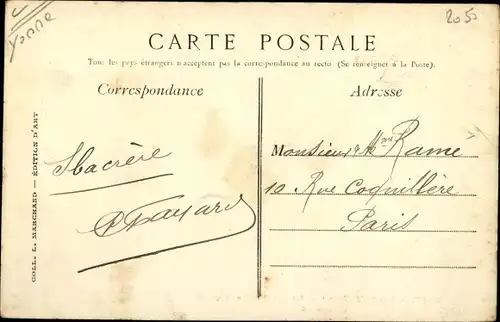 Yonne
20 50
CARTE POSTALE
Tous les pays étrangers n'acceptent pas la correspondance au recto (Se renseigner à la Poste).
Correspondance
Adresse
COLL. L. MARCHAND — ÉDITION D'ART
Monsieur & Mme Ramé
10 Rue Coquillère
Paris